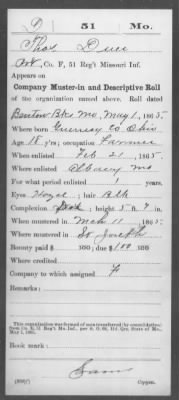 D 51 Mo.
Thos Duce
Pvt, Co. F, 51 Reg't Missouri Inf.
Appears on
Company Muster-in and Descriptive Roll
of the organization named above. Roll dated
Benton Bks Mo, May 1, 1865.
Where born Guernsey Co Ohio
Age 18 y'rs; occupation Farmer
When enlisted Feb 21, 1865
Where enlisted Albany Mo
For what period enlisted 1 years
Eyes Hazel; hair Blk
Complexion ; height 5 ft. 7 in.
When mustered in Mch 11, 1865
Where mustered in St Joseph
Bounty paid $ 100; due $ 100 100
Where credited
Company to which assigned F
Remarks:
This organization was formed of men transferred (by consolidation)
May 1, 1865.
Book mark:
Copyist.